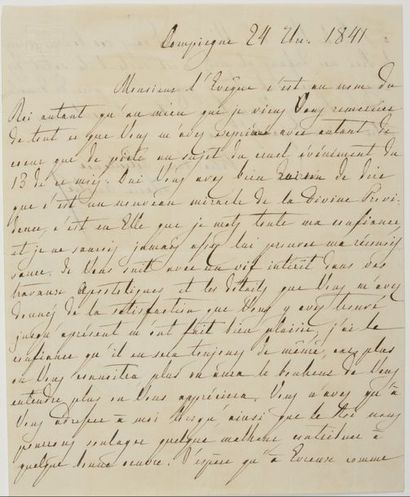 Compiegne 24 7bre. 1841
Monsieur l'Evêque c'est au nom du
Roi autant qu'au mien que je viens Vous remercier
de tout ce que Vous m'avez exprimé avec autant de
coeur que de piété au sujet du cruel événement du
13 de ce mois. Oui Vous avez bien raison de dire
que c'est un nouveau miracle de la Divine Provi-
dence, c'est en Elle que je mets toute ma confiance
et je ne saurois jamais assez lui prouver ma reconnois
sance. Je Vous suit avec un vif intérêt dans vos
travaux apostoliques et les détails que Vous m'avez
donnés de la satisfaction que Vous y avez trouvé
jusqu'aprésent m'ont fait bien plaisir, j'ai la
confiance qu'il en sera toujours de même, car plus
on Vous connoitra plus on aura le bonheur de Vous
entendre plus on Vous appréciera. Vous n'avez qu'à
Vous adresser à moi lorsqu'ainsi que le Roi nous
pourrons soulager quelque malheur contribuer à
quelque bonne oeuvre. J'espère qu'à Evreux comme